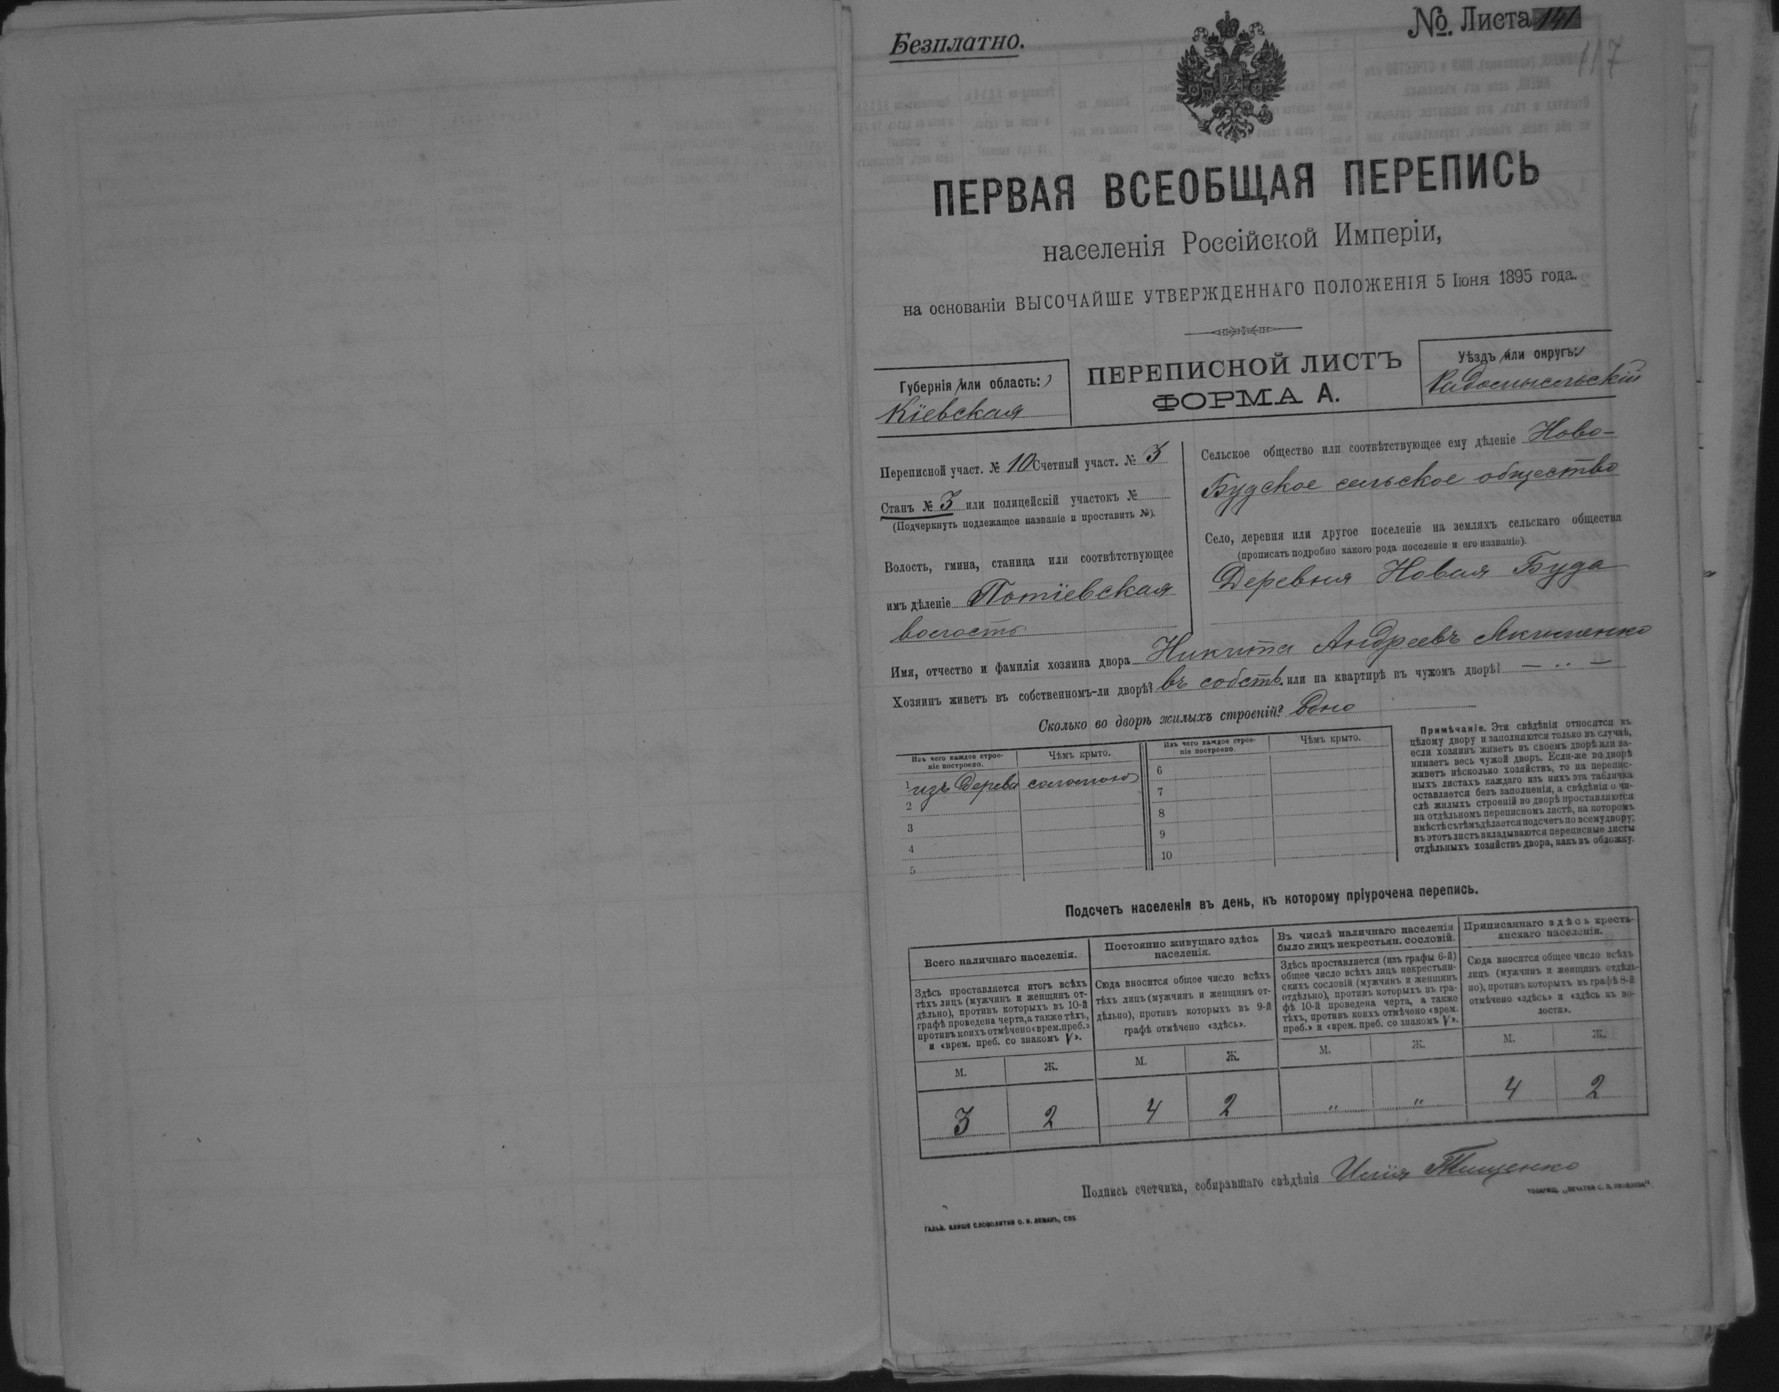 Безплатно.
№. Листа 141
117
ПЕРВАЯ ВСЕОБЩАЯ ПЕРЕПИСЬ
населенія Россійской Имперіи,
на основаніи ВЫСОЧАЙШЕ УТВЕРЖДЕННАГО ПОЛОЖЕНІЯ 5 Іюня 1895 года.
Губернія или область:
Кіевская
ПЕРЕПИСНОЙ ЛИСТЪ
ФОРМА А.
Уѣздъ или округъ:
Радомысльскій
Переписной участ. № 10 Счетный участ. № 3
Станъ № 3 или полицейскій участокъ №
(Подчеркнуть подлежащее названіе и проставить №).
Волость, гмина, станица или соотвѣтствующее
имъ дѣленіе Потіевская
волость
Сельское общество или соотвѣтствующее ему дѣленіе Ново-
Будское сельское общество
Село, деревня или другое поселеніе на земляхъ сельскаго общества
(прописать подробно какого рода поселеніе и его названіе).
Деревня Новая Буда
Имя, отчество и фамилія хозяина двора Никита Андреевъ Якименко
Хозяинъ живетъ въ собственномъ-ли дворѣ? въ собств. или на квартирѣ въ чужомъ дворѣ? — .. —
Сколько во дворѣ жилыхъ строеній? Одно
Изъ чего каждое строе-
ніе построено.
Чѣмъ крыто.
1 изъ дерева соломою
2
3
4
5
Изъ чего каждое строе-
ніе построено.
Чѣмъ крыто.
6
7
8
9
10
Примѣчаніе. Эти свѣдѣнія относятся къ
цѣлому двору и заполняются только въ случаѣ,
если хозяинъ живетъ въ своемъ дворѣ или за-
нимаетъ весь чужой дворъ. Если-же во дворѣ
живетъ нѣсколько хозяйствъ, то на перепис-
ныхъ листахъ каждаго изъ нихъ эта табличка
оставляется безъ заполненія, а свѣдѣнія о чи-
слѣ жилыхъ строеній во дворѣ проставляются
на отдѣльномъ переписномъ листѣ, на которомъ
вмѣстѣ съ тѣмъ дѣлается подсчетъ по всему двору;
въ этотъ листъ вкладываются переписные листы
отдѣльныхъ хозяйствъ двора, какъ въ обложку.
Подсчетъ населенія въ день, къ которому пріурочена перепись.
Всего наличнаго населенія.
Здѣсь проставляется итогъ всѣхъ
тѣхъ лицъ (мужчинъ и женщинъ от-
дѣльно), противъ которыхъ въ 10-й
графѣ проведена черта, а также тѣхъ,
противъ коихъ отмѣчено «врем. преб.»
и «врем. преб. со знакомъ V».
М. Ж.
3 2
Постоянно живущаго здѣсь
населенія.
Сюда вносится общее число всѣхъ
тѣхъ лицъ (мужчинъ и женщинъ от-
дѣльно), противъ которыхъ въ 9-й
графѣ отмѣчено «здѣсь».
М. Ж.
4 2
Въ числѣ наличнаго населенія
было лицъ некрестьян. сословій.
Здѣсь проставляется (изъ графы 6-й)
общее число всѣхъ лицъ некрестьян-
скихъ сословій (мужчинъ и женщинъ
отдѣльно), противъ которыхъ въ гра-
фѣ 10-й проведена черта, а также
тѣхъ, противъ коихъ отмѣчено «врем.
преб.» и «врем. преб. со знакомъ V».
М. Ж.
" "
Приписаннаго здѣсь кресть-
янскаго населенія.
Сюда вносится общее число всѣхъ
лицъ (мужчинъ и женщинъ отдѣль-
но), противъ которыхъ въ графѣ 8-й
отмѣчено «здѣсь» и «здѣсь въ во-
лости».
М. Ж.
4 2
Подпись счетчика, собиравшаго свѣдѣнія Илія Тищенко
ГАЛЬВ. КЛИШЕ СЛОВОЛИТНИ О. И. ЛЕМАНЪ, СПБ
ТОВАРИЩ. „ПЕЧАТНЯ С. П. ЯКОВЛЕВА“